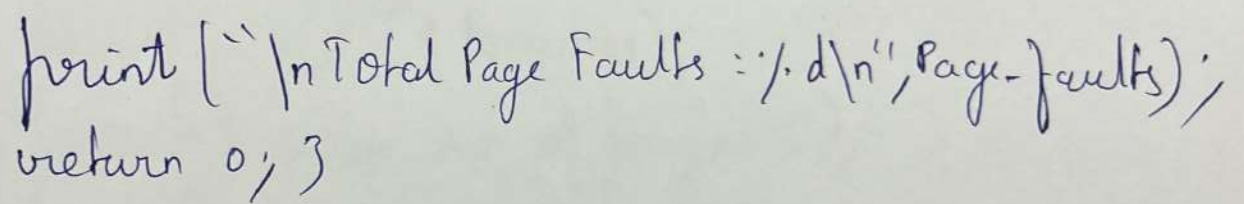 print("\nTotal Page Faults :%d\n",Page-faults);
return 0; }